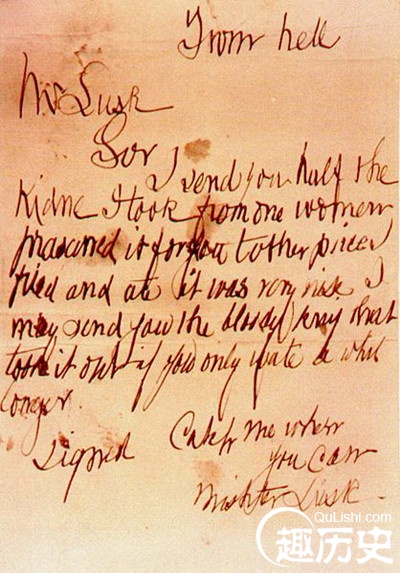 From hell
Mr Lusk
Sor
I send you half the
Kidne I took from one women
prasarved it for you tother piece I
fried and ate it was very nise I
may send you the bloody knif that
took it out if you only wate a whil
longer.
signed Catch me when
you Can
Mishter Lusk.
QuLishi.com
趣历史